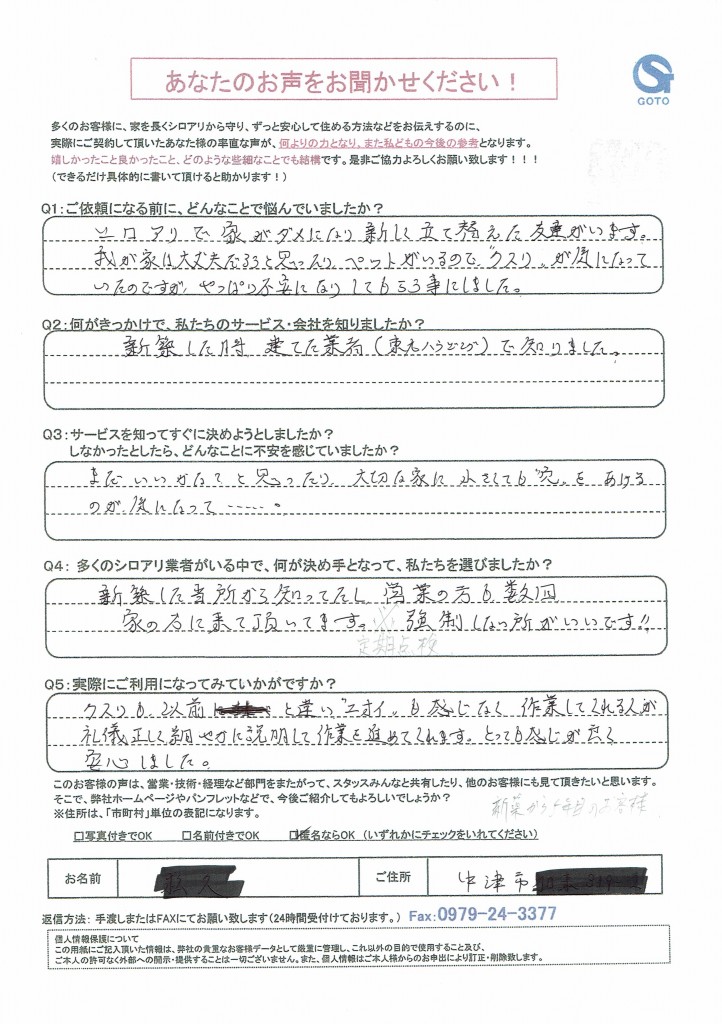 あなたのお声をお聞かせください！
GOTO
多くのお客様に、家を長くシロアリから守り、ずっと安心して住める方法などをお伝えするのに、
実際にご契約して頂いたあなた様の率直な声が、何よりの力となり、また私どもの今後の参考となります。
嬉しかったこと良かったこと、どのような些細なことでも結構です。是非ご協力よろしくお願い致します！！！
（できるだけ具体的に書いて頂けると助かります！）
Q1：ご依頼になる前に、どんなことで悩んでいましたか？
シロアリで家がダメになり新しく立て替えた友達がいます。
我が家は大丈夫だろうと思ったり、ペットがいるので"クスリ"が気になって
いたのですが、やっぱり不安になりしてもらう事にしました。
Q2：何がきっかけで、私たちのサービス・会社を知りましたか？
新築した時 建てた業者（東光ハウジング）で知りました。
Q3：サービスを知ってすぐに決めようとしましたか？
しなかったとしたら、どんなことに不安を感じていましたか？
まだいいかな？と思ったり、大切な家に小さくても"穴"をあける
のが気になって……。
Q4： 多くのシロアリ業者がいる中で、何が決め手となって、私たちを選びましたか？
新築した当所から知ってたし 営業の方も数回
家の方に来て頂いてます。※ 強制しない所がいいです!!
定期点検
Q5：実際にご利用になってみていかがですか？
クスリも、以前と違い"ニオイ"も感じなく 作業してくれる人が
礼儀正しく細やかに説明して作業を進めてくれます。とっても感じが良く
安心しました。
このお客様の声は、営業・技術・経理など部門をまたがって、スタッスみんなと共有したり、他のお客様にも見て頂きたいと思います。
そこで、弊社ホームページやパンフレットなどで、今後ご紹介してもよろしいでしょうか？
※住所は、「市町村」単位の表記になります。
□写真付きでOK □名前付きでOK □匿名ならOK （いずれかにチェックをいれてください）
お名前 ご住所 中津市
返信方法： 手渡しまたはFAXにてお願い致します（24時間受付けております。） Fax：0979-24-3377
個人情報保護について
この用紙にご記入頂いた情報は、弊社の貴重なお客様データとして厳重に管理し、これ以外の目的で使用すること及び、
ご本人の許可なく外部への開示・提供することは一切ございません。また、個人情報はご本人様からのお申出により訂正・削除致します。